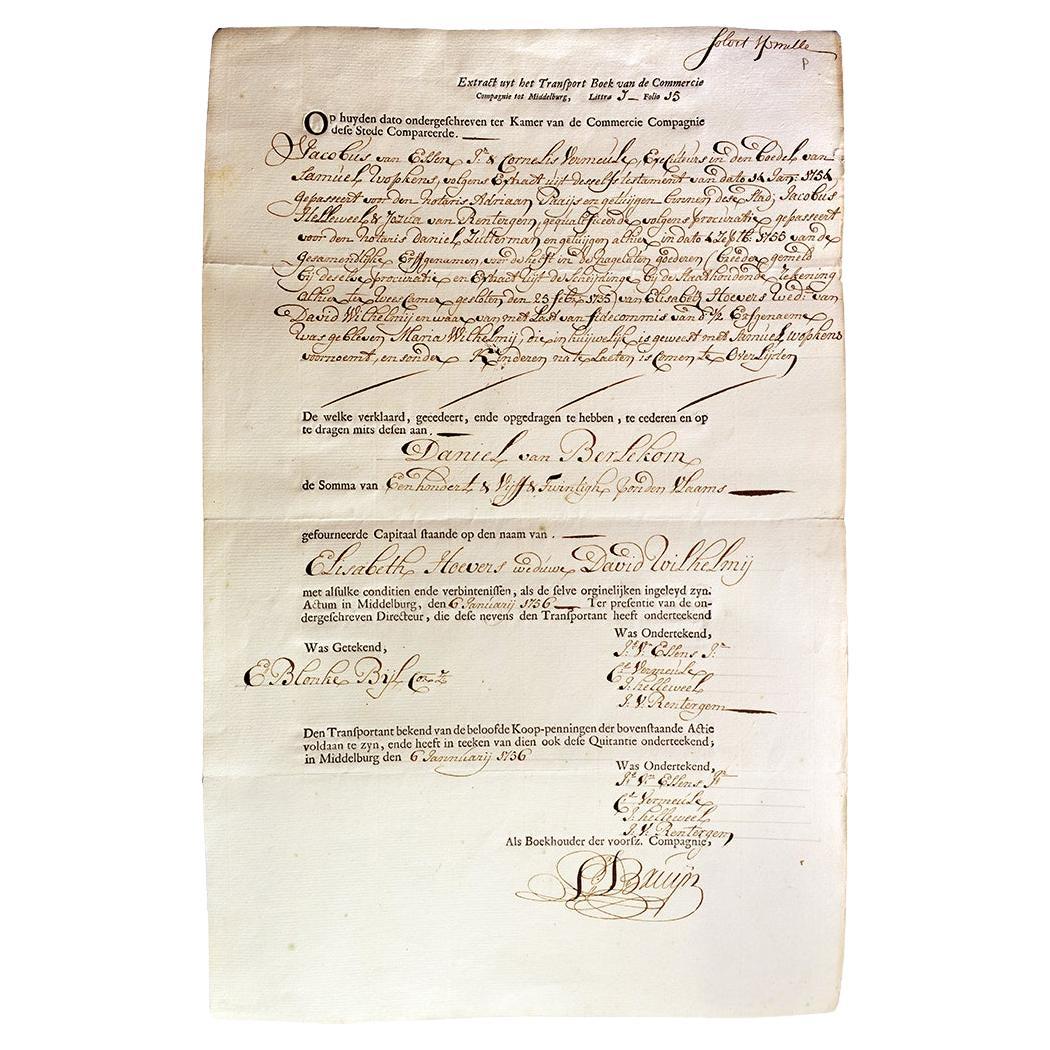 Solvit
P
Extract uyt het Transport Boek van de Commercie
Compagnie tot Middelburg, Littra J Folio 15
Op huyden dato ondergeschreven ter Kamer van de Commercie Compagnie
dese Stede Compareerde.
Jacobus van Essen Jr & Cornelis Vermeule, Executeurs in den boedel van
Samuel Wopkens, volgens Extract uijt desselfs testament van dato 14 Jan: 1754
gepasseert voor den notaris Adriaan Parijs en getuijgen binnen dese Stad; Jacobus
Helleweel & van Rentergem, gequalificeerde volgens procuratie, gepasseert
voor den notaris Daniel Zuiterman en getuijgen alhier in dato 4 1755 van de
gesamendlijke Erffgenamen, voor de helft in de nagelaten goederen (breeder gemeld
bij deselve procuratie en Extract uijt de Scheijdinge bij de Staathoudende rekening
alhier ter Weescamer gesloten den 25 feb: 1735) van Elisabeth Hoevers Wed: van
David Wilhelmij en waar van met Last van fidecommis van d' 1/2 Erfgenaeme
was gebleven Maria Wilhelmij, die in huijwelijk is geweest met Samuel Wopkens
voornoemt, en sonder Kinderen na te Laeten is Comen te Overlijden
De welke verklaard, gecedeert, ende opgedragen te hebben, te cederen en op
te dragen mits desen aan.
Daniel van Berlekom
de Somma van Een hondert & Vijff & Twintigh ponden Vlaams
gefourneerde Capitaal staande op den naam van.
Elisabeth Hoevers weduwe David Wilhelmij
met alsulke conditien ende verbintenissen, als de selve orginelijken ingeleyd zyn.
Actum in Middelburg, den 6 Januarij 1756 Ter presentie van de on-
dergeschreven Directeur, die dese nevens den Transportant heeft onderteekend
Was Ondertekend,
Was Getekend,
Jr. Vn Essens Jr
E Blonke Bijl
Cs Vermeule
J. helleweel
J. V. Rentergem
Den Transportant bekend van de beloofde Koop-penningen der bovenstaande Actie
voldaan te zyn, ende heeft in teeken van dien ook dese Quitantie onderteekend;
in Middelburg den 6 Jannuarij 1756
Was Ondertekend,
Jr. Vn Essens Jr
Cs Vermeule
J. helleweel
J. V. Rentergem
Als Boekhouder der voorsz. Compagnie,
Bruijn